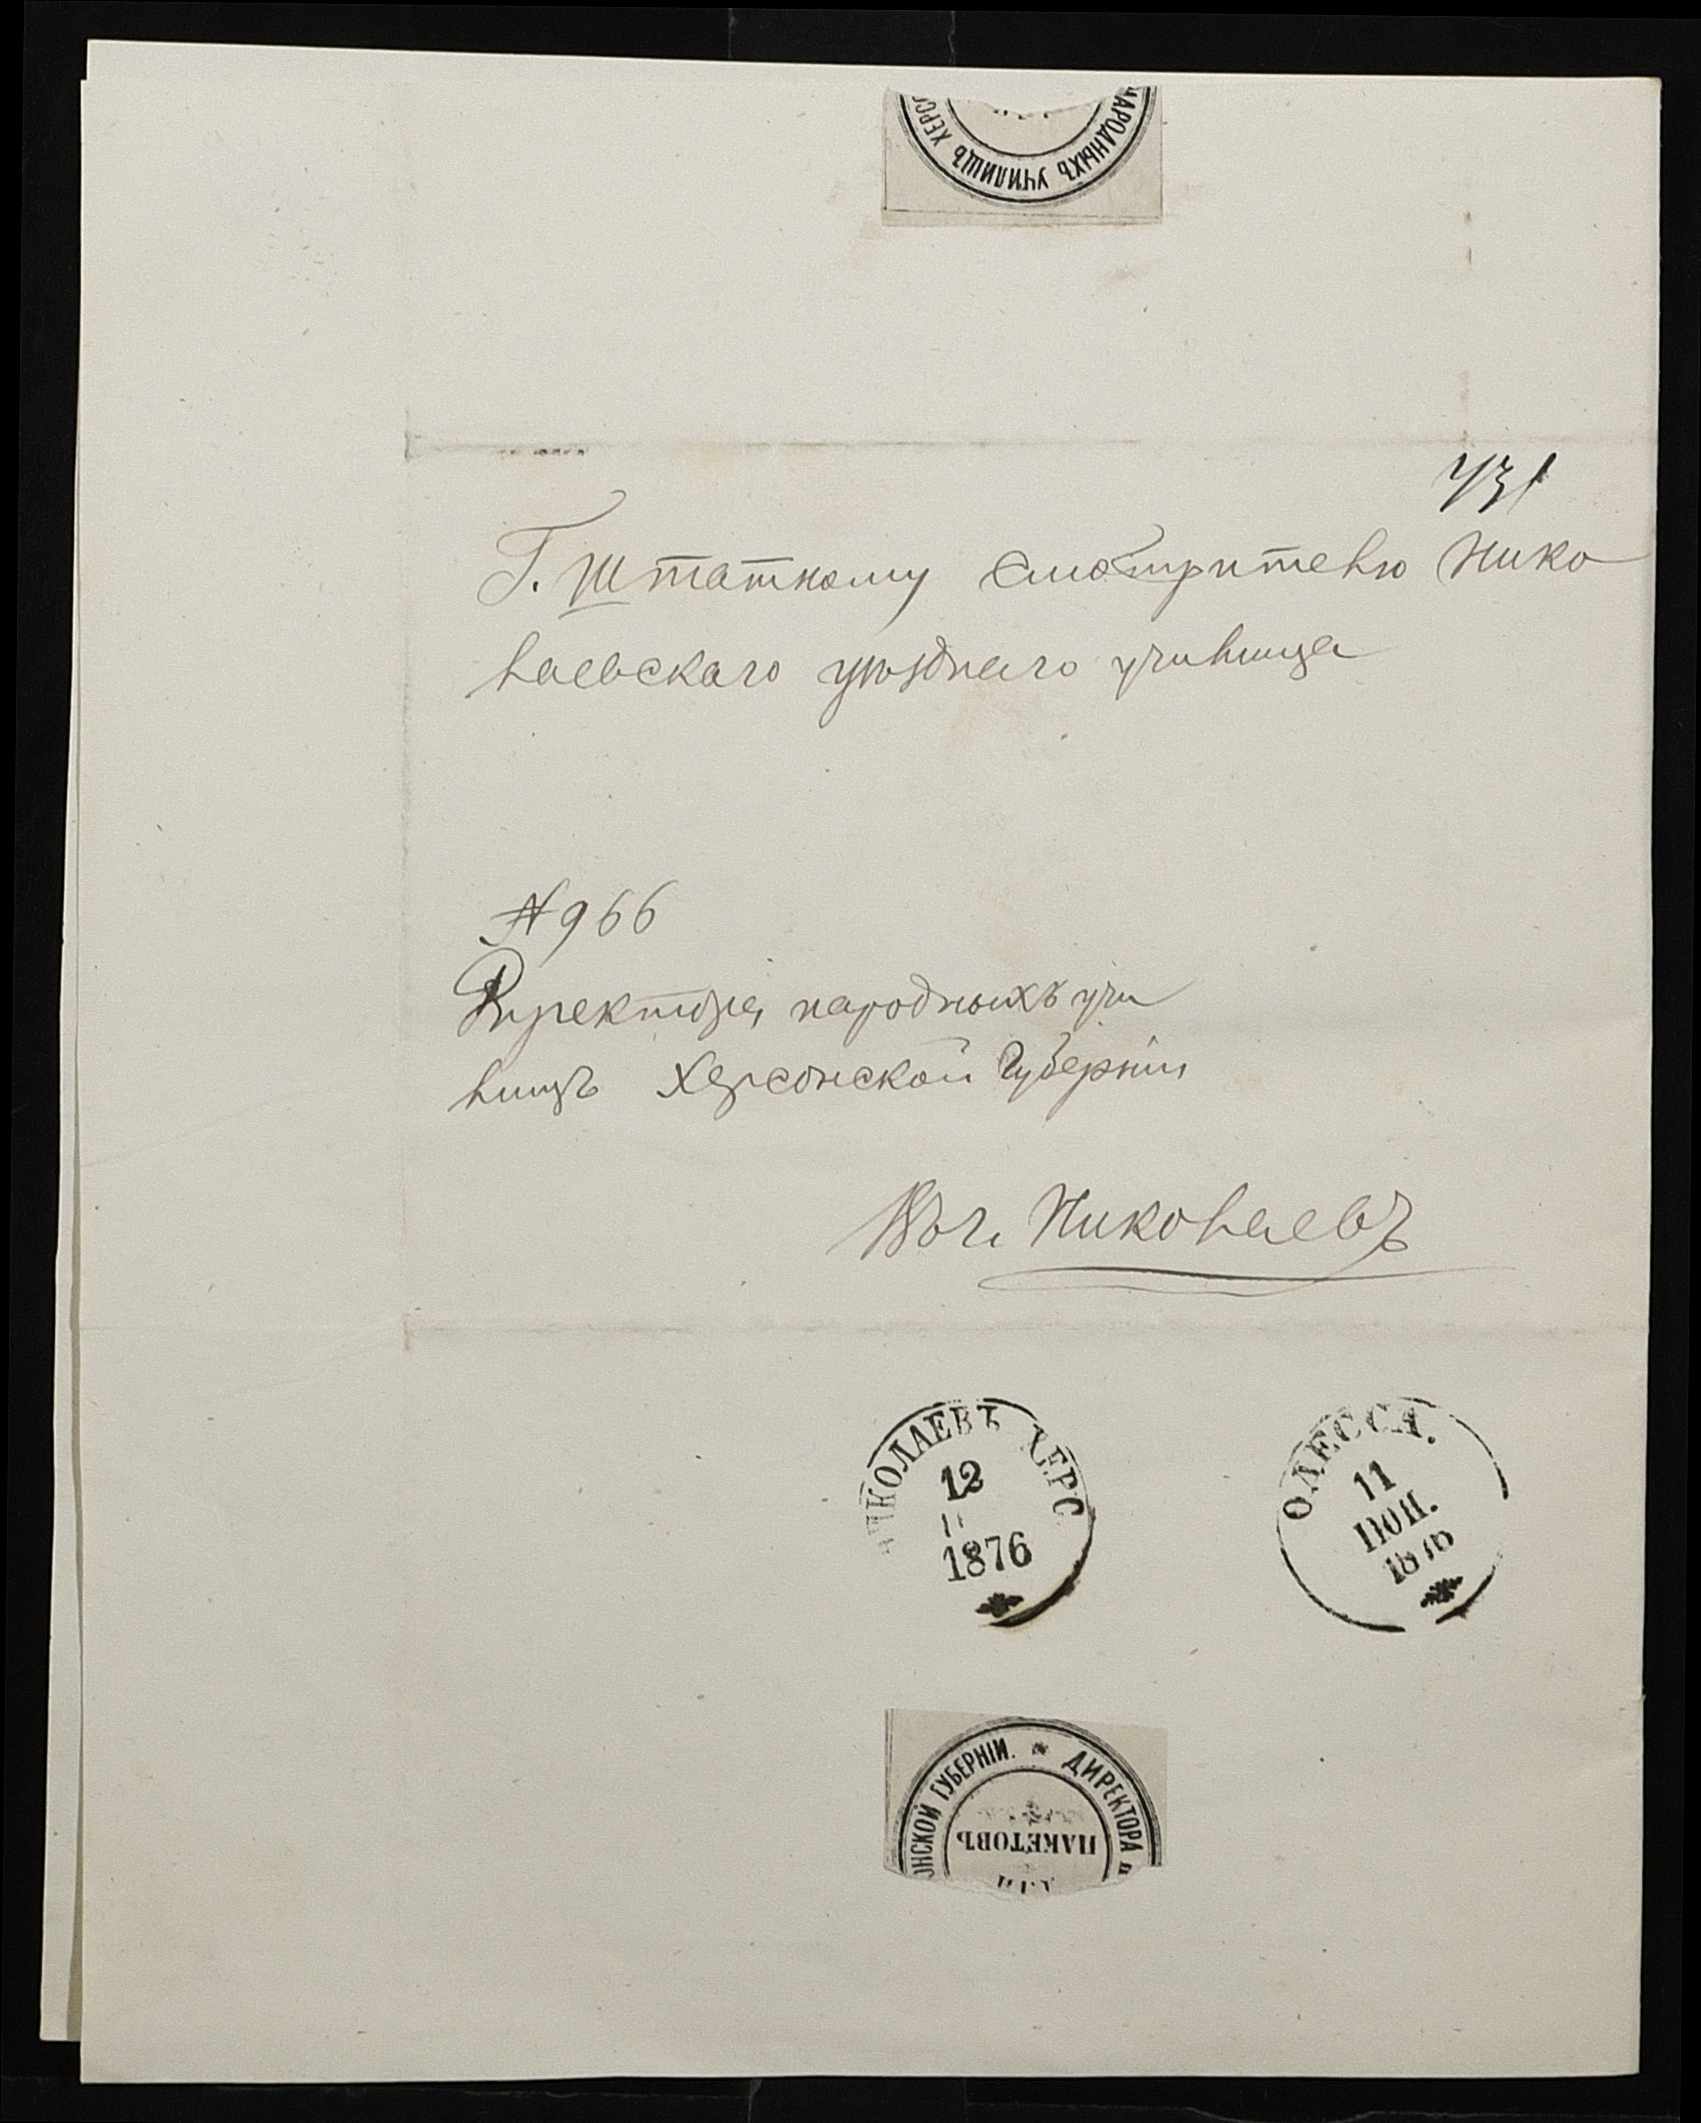 НАРОДНЫХЪ УЧИЛИЩЪ ХЕРСО
Г. Штатному смотрителю Нико
лаевскаго уѣзднаго училища
№ 966
Директора народныхъ учи
лищъ Херсонской Губерніи
Въ г. Николаевъ
НИКОЛАЕВЪ ХЕРС
12
1876
ОДЕССА.
11
ІЮН.
1876
ОНСКОЙ ГУБЕРНІИ. * ДИРЕКТОРА Н
ПАКЕТОВЪ
ДЛЯ